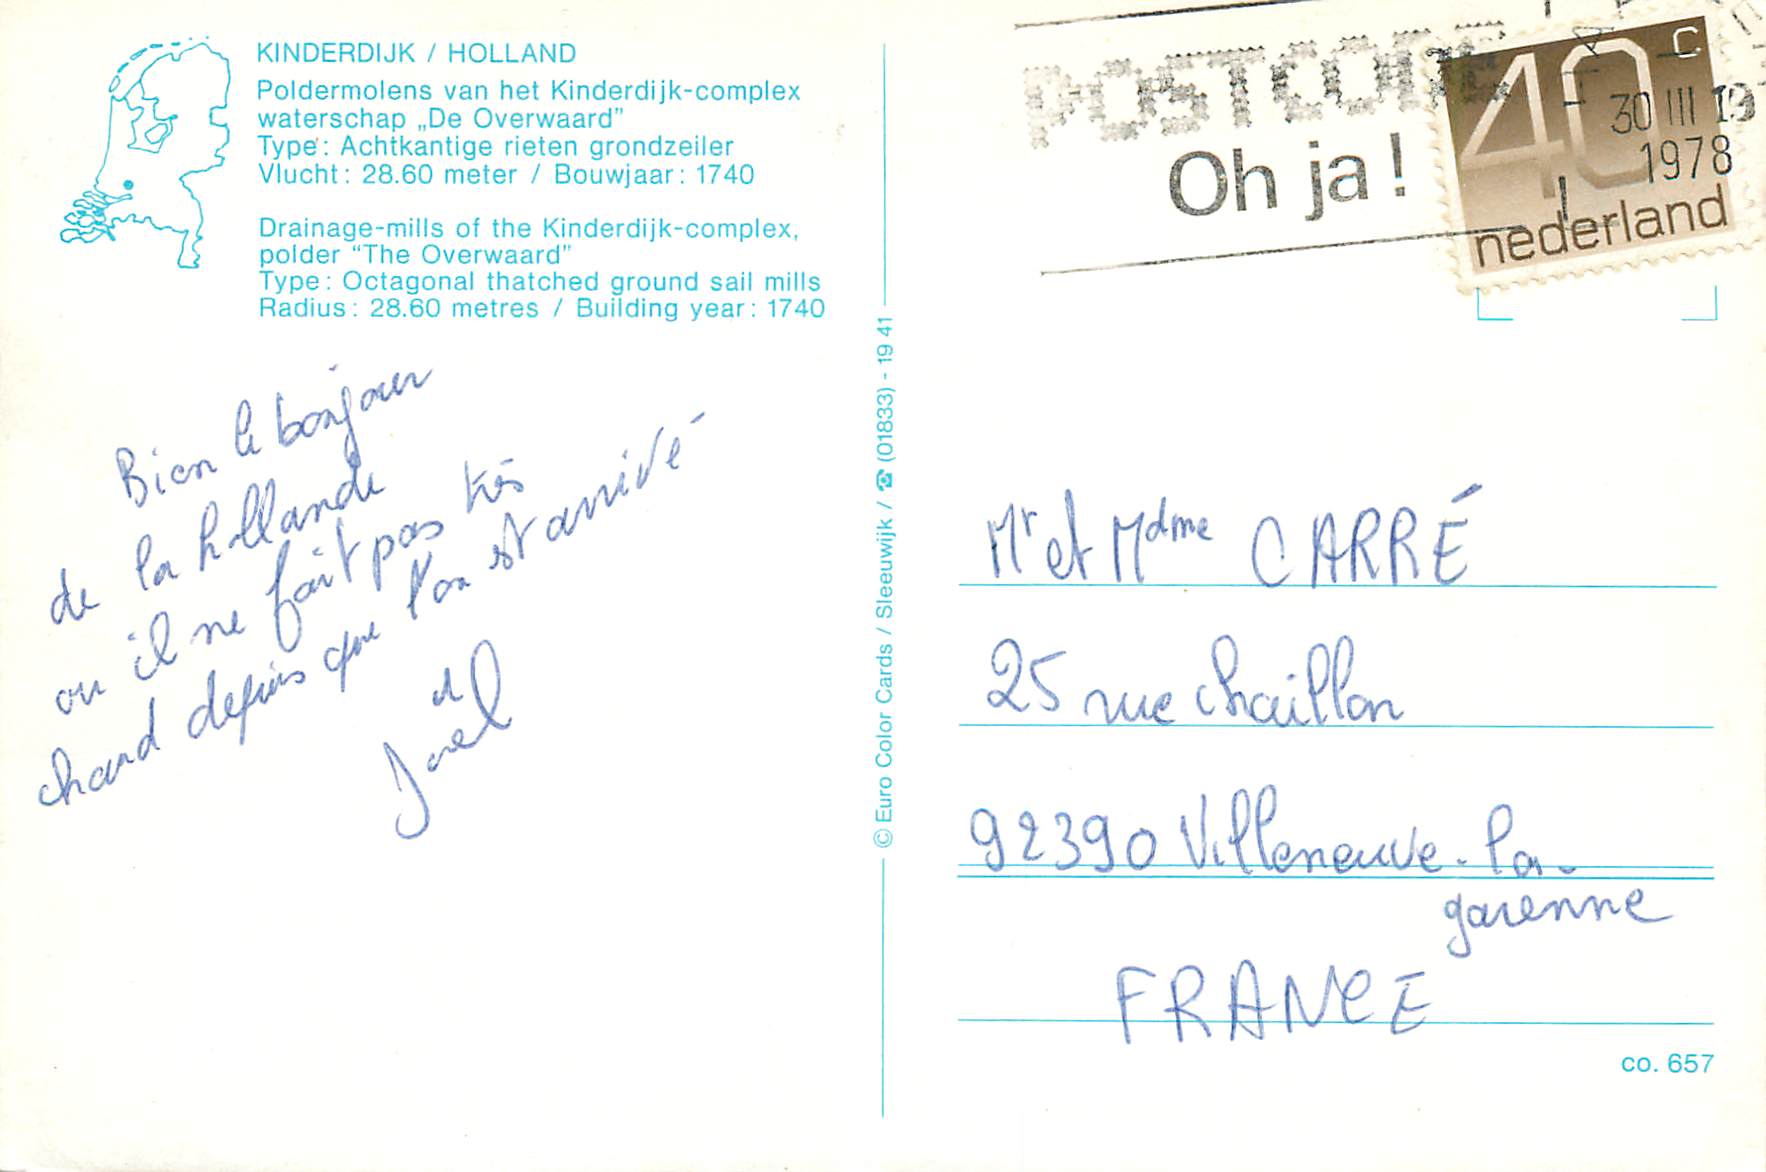 KINDERDIJK / HOLLAND
Poldermolens van het Kinderdijk-complex
waterschap „De Overwaard”
Type: Achtkantige rieten grondzeiler
Vlucht: 28.60 meter / Bouwjaar: 1740
Drainage-mills of the Kinderdijk-complex,
polder “The Overwaard”
Type: Octagonal thatched ground sail mills
Radius: 28.60 metres / Building year: 1740
Bien le bonjour
de la hollande
ou il ne fait pas très
chaud depuis que l'on est arrivé
Joel
© Euro Color Cards / Sleeuwijk / ☎ (01833) - 19 41
POSTCODE
Oh ja!
40 c
nederland
30 III 19
1978
Mr et Mdme CARRÉ
25 rue Chaillon
92390 Villeneuve-la-
garenne
FRANCE
co. 657